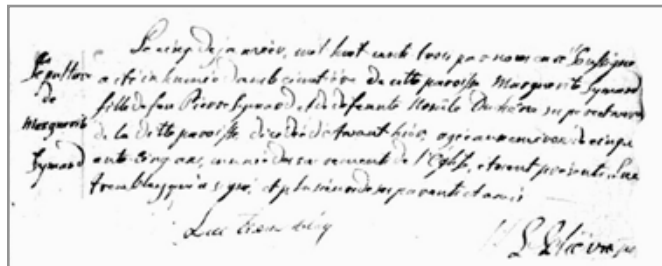 Sepulture
de
Margueritte
Symard
Le cinq de janvier, mil huit cent trois par nous curé soussigné
a été inhumée dans le cimetière de cette paroisse Margueritte Symard
fille de feu Pierre Symard, et de defeunte
de la ditte paroisse décédée d'avant hier, agée environ de cinqu
ante cinq ans, munie des sacrements de l'Eglise, etoient présents Luc
tremblay qui a signé, et plusieurs de ses parents et amis
Luc Trembley
L Lelièvre ptre